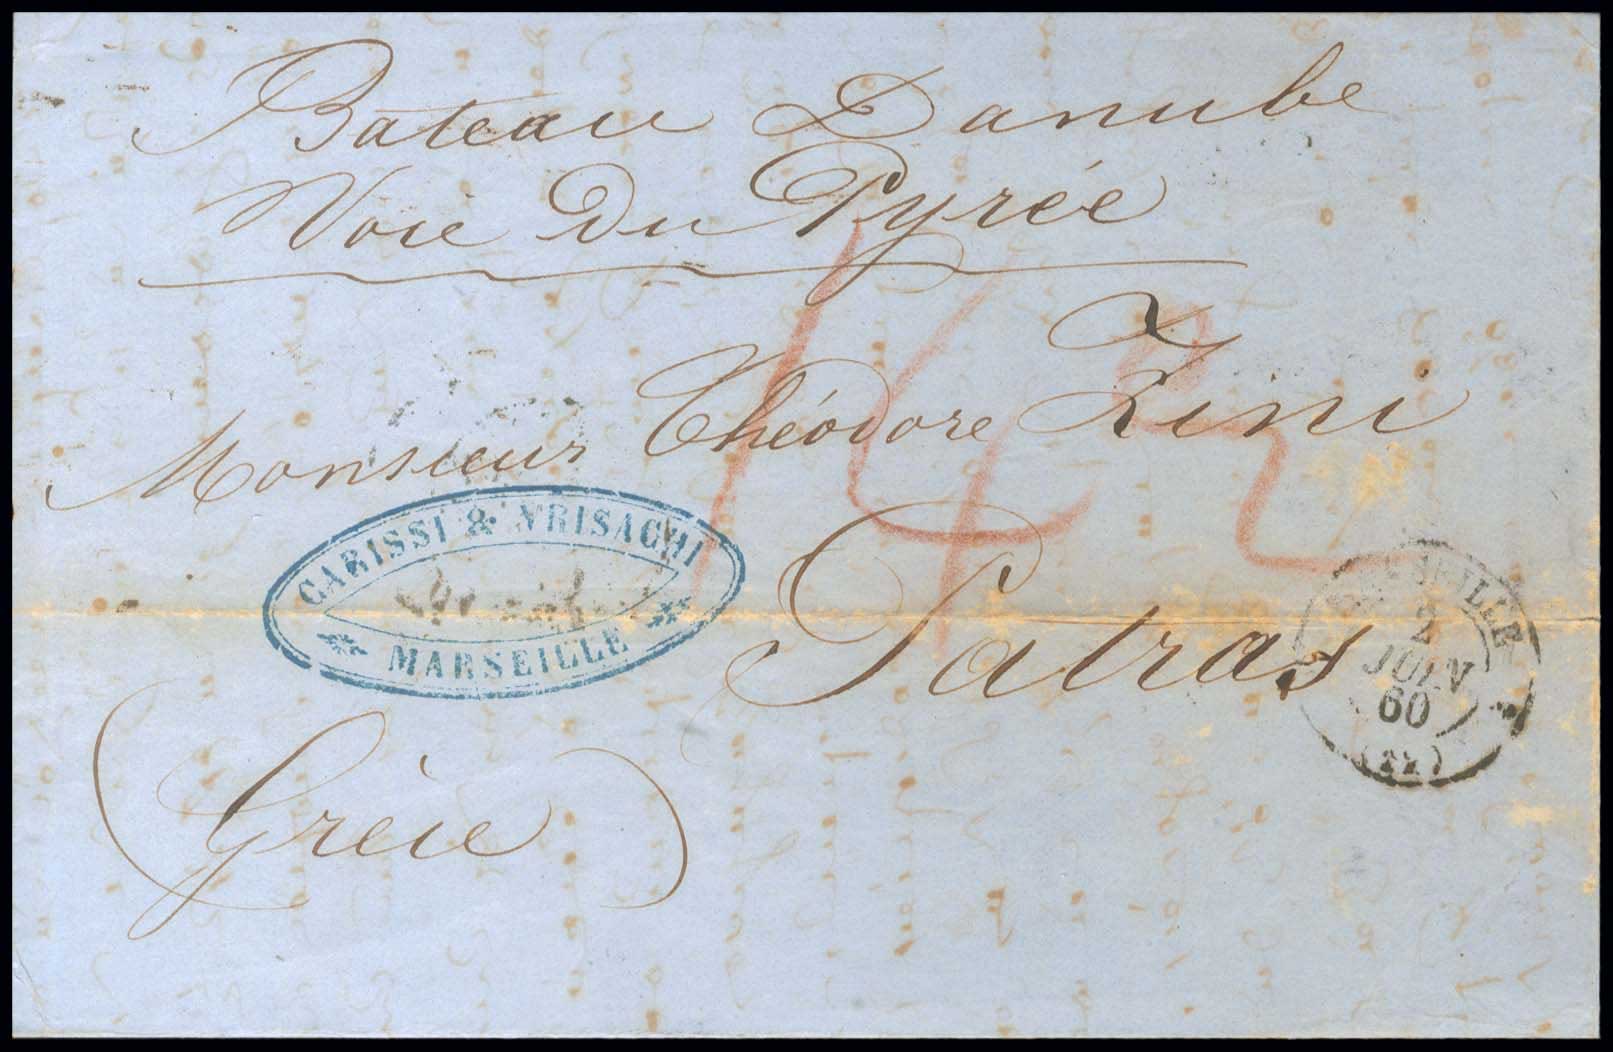 Bateau Danube
Voie du Pyrée
Monsieur Théodore Zini
CARISSI & VRISACHI
MARSEILLE
Patras
MARSEILLE
2
JUIN
60
(Grèce)